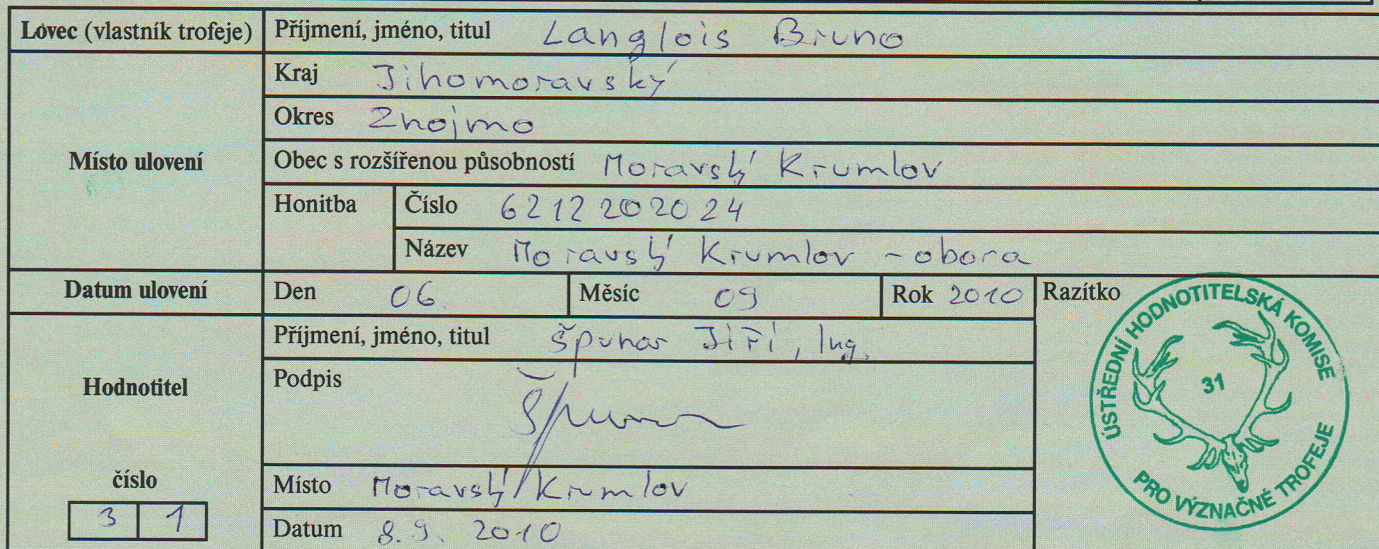 Lovec (vlastník trofeje) Příjmení, jméno, titul Langlois Bruno
Místo ulovení
Kraj Jihomoravský
Okres Znojmo
Obec s rozšířenou působností Moravský Krumlov
Honitba Číslo 6212202024
Název Moravský Krumlov - obora
Datum ulovení Den 06. Měsíc 09 Rok 2010 Razítko
Hodnotitel
Příjmení, jméno, titul Špunar Jiří, Ing.
Podpis
číslo
3 1
Místo Moravský Krumlov
Datum 8.9. 2010
ÚSTŘEDNÍ HODNOTITELSKÁ KOMISE
31
PRO VÝZNAČNÉ TROFEJE